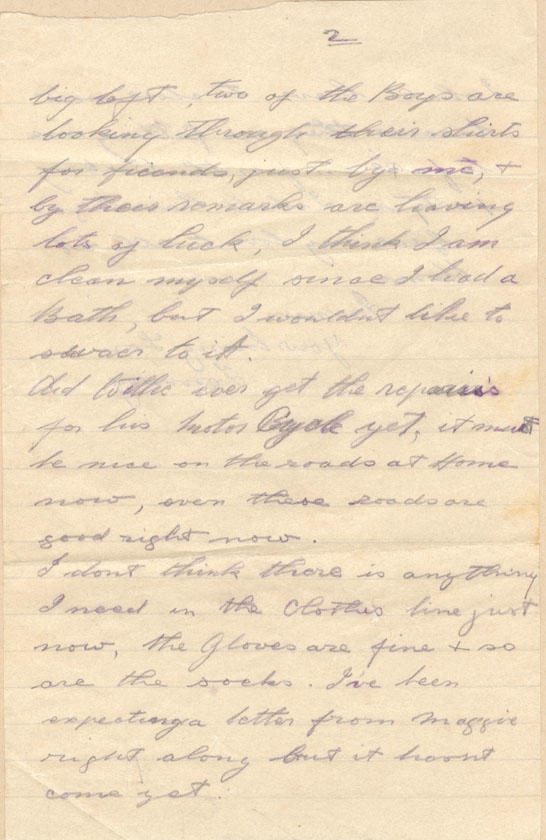 2
big loft, two of the Boys are
looking through their shirts
for friends, just by me, +
by their remarks are having
lots of luck, I think I am
clean myself since I had a
Bath, but I wouldnt like to
swaer to it.
Did Willie ever get the repairs
for his Motor Cycle yet, it must
be nice on the roads at Home
now, even these roads are
good right now.
I dont think there is anything
I need in the Clothes line just
now, the Gloves are fine + so
are the socks. I've been
expecting a letter from Maggie
right along but it hasnt
come yet.